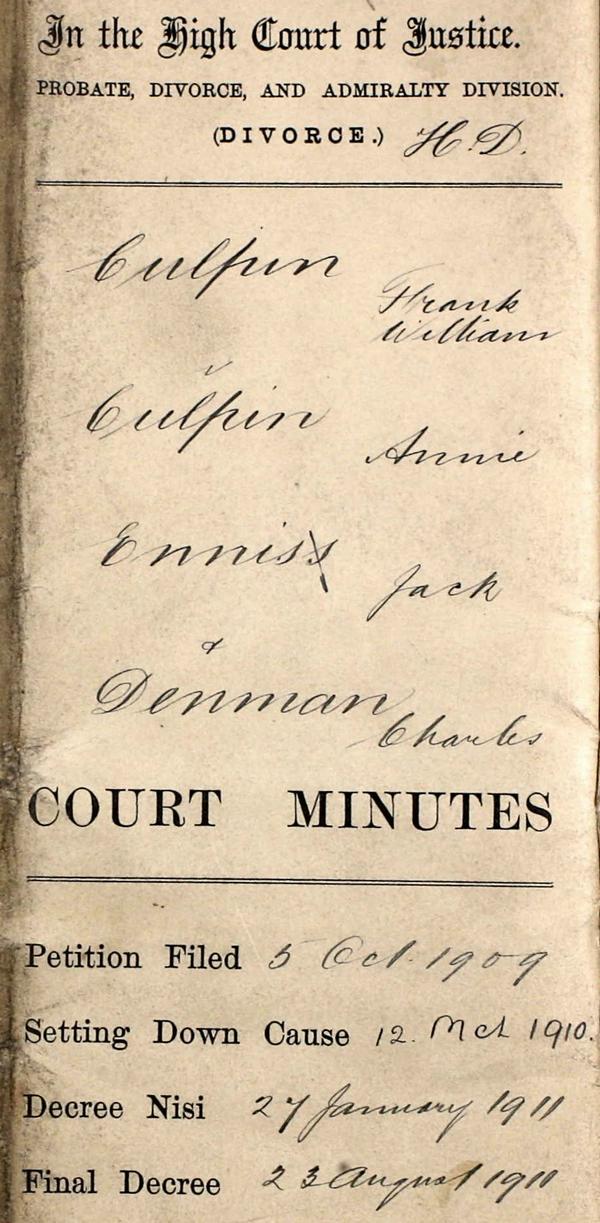 In the High Court of Justice.
PROBATE, DIVORCE, AND ADMIRALTY DIVISION.
(DIVORCE.) H.D.
Culpin
Frank
William
v
Culpin
Annie
Enniss
Jack
&
Denman
Charles
COURT MINUTES
Petition Filed 5 Oct. 1909
Setting Down Cause 12. Mch 1910.
Decree Nisi 27 January 1911
Final Decree 23 August 1911